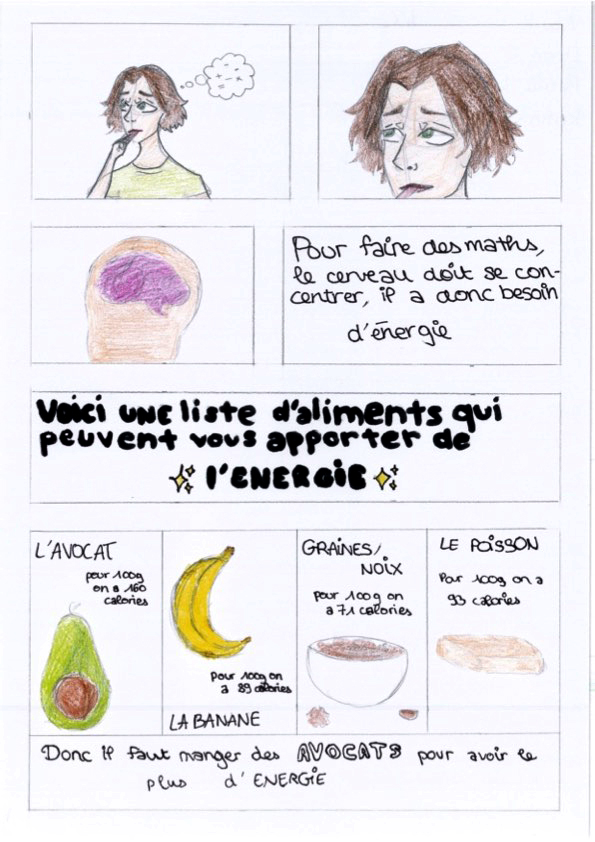 Pour faire des maths,
le cerveau doit se con-
centrer, il a donc besoin
d'énergie
Voici une liste d'aliments qui
peuvent vous apporter de
l'ENERGIE
L'AVOCAT
pour 100g
on a 160
calories
pour 100g on
a 89 calories
LA BANANE
GRAINES/
NOIX
pour 100g on
a 71 calories
LE POISSON
Pour 100g on a
93 calories
Donc il faut manger des AVOCATS pour avoir le
plus d'ENERGIE